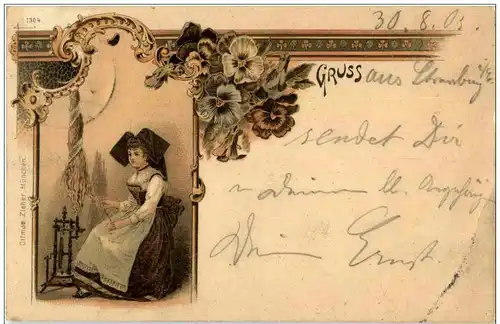 1304
30. 8. 03.
GRUSS aus Strassburg i/E
sendet Dir
u Deinen ll. Angehörig
Dein Ernst.
Ottmar Zieher, München.